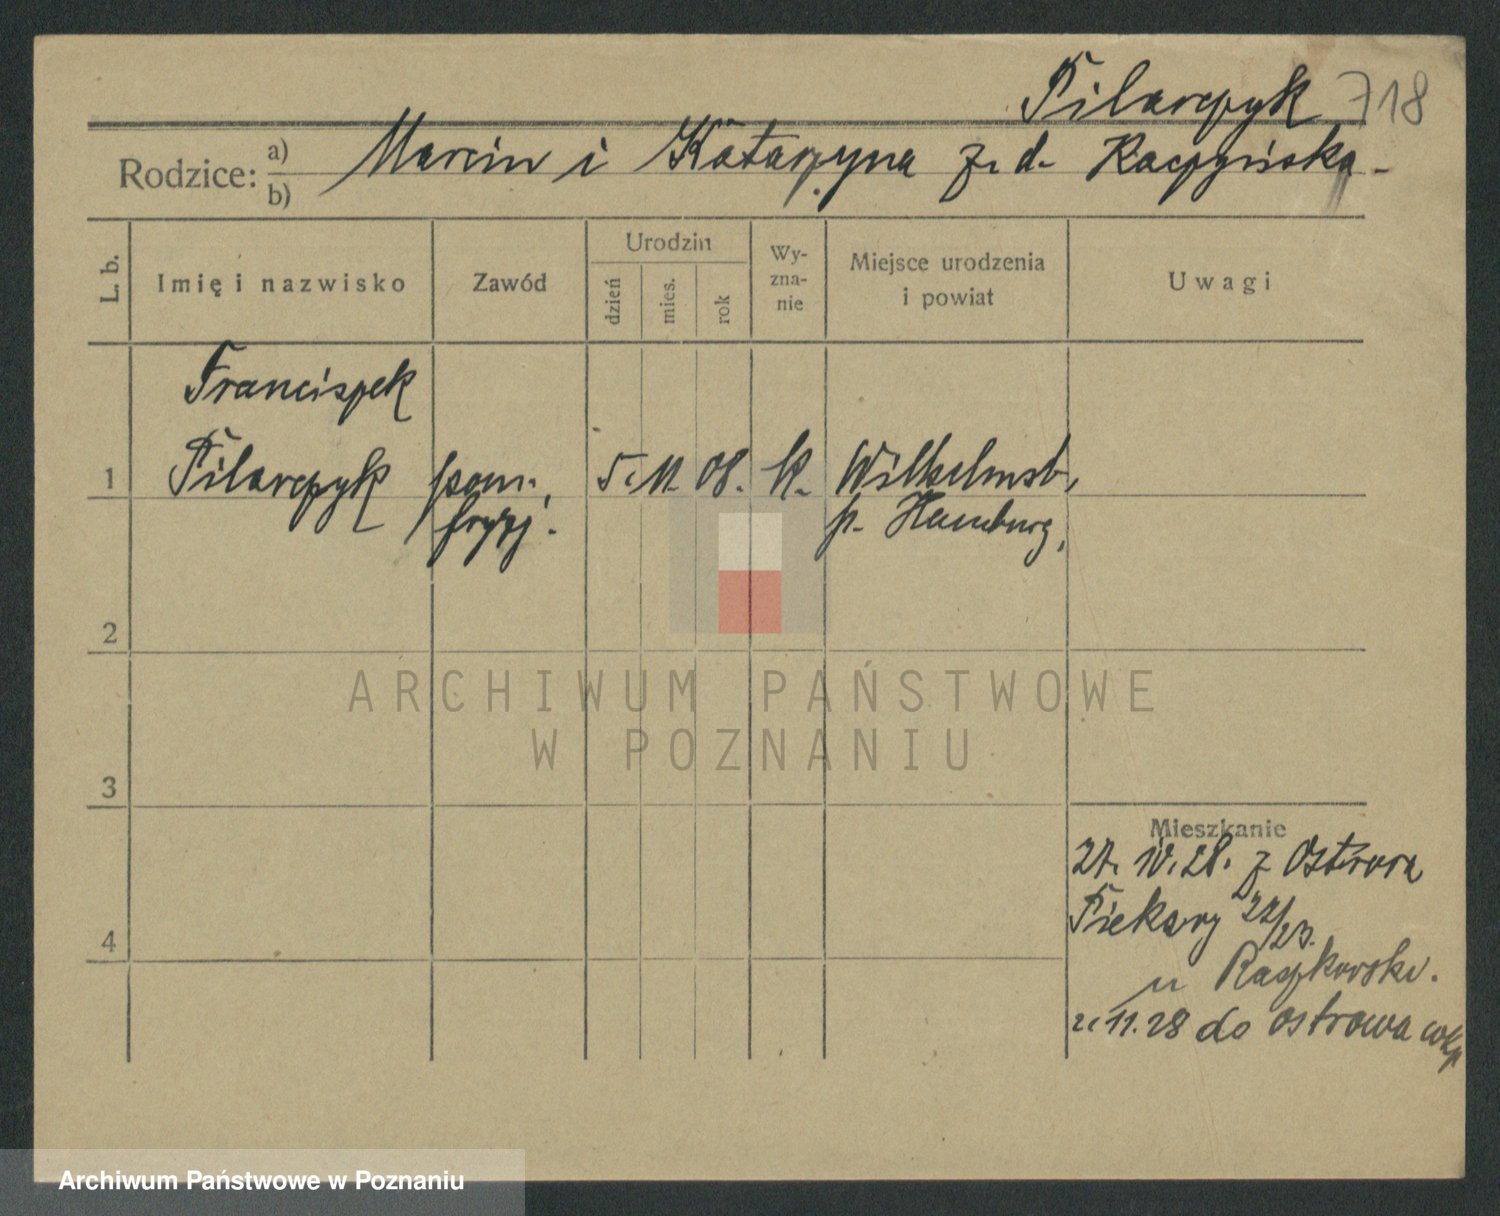 Pilarczyk 718
Rodzice: a) b) Marcin i Katarzyna z. d. Raczyńska.
L. b.
Imię i nazwisko
Zawód
Urodzin
dzień
mies.
rok
Wy-
zna-
nie
Miejsce urodzenia
i powiat
Uwagi
Franciszek
1 Pilarczyk pom. 5. 11. 08. k. Wilhelmsb,
fryzj. p. Hamburg,
2
3
4
ARCHIWUM PAŃSTWOWE
W POZNANIU
Mieszkanie
27. IV. 28. z Ostrowa
Piekary 22/23.
u Raszkowski.
11.28 do Ostrowa wlkp
Archiwum Państwowe w Poznaniu